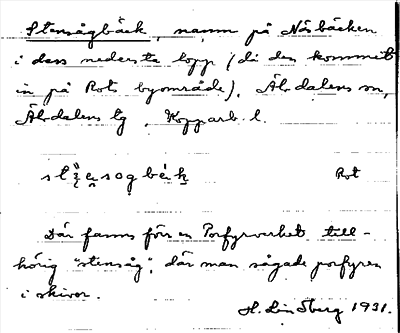 Stensågbäck, namn på Näsbäcken
i dess nedersta lopp (då den kommit
in på Rots byområde), Älvdalens sn,
Älvdalens tg, Kopparb. l.
Rot
Där fanns förr en Porfyrverket till-
hörig "stensåg", där man sågade porfyren
i skivor.
H. Lindberg 1931.